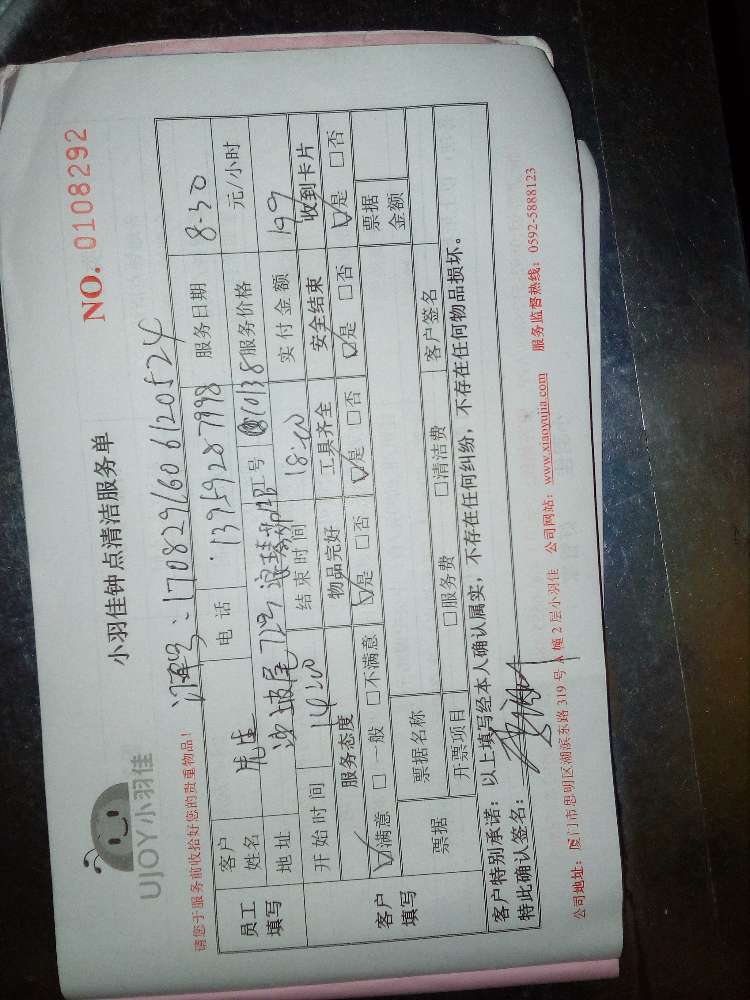 UJOY小羽佳
小羽佳钟点清洁服务单
NO. 0108292
请您于服务前收拾好您的贵重物品!
订单号:1708291606120524
员工填写
客户姓名 先生 电话 13959287998 服务日期 8-30
地址 工号 服务价格 元/小时
开始时间 14:00 结束时间 18:00 实付金额 199
客户填写
服务态度 物品完好 工具齐全 安全结束 收到卡片
☑满意 □一般 □不满意 ☑是 □否 ☑是 □否 ☑是 □否 ☑是 □否
票据 票据名称 票据金额
开票项目 □服务费 □清洁费 客户签名
客户特别承诺:以上填写经本人确认属实,不存在任何纠纷,不存在任何物品损坏。
特此确认签名:
公司地址:厦门市思明区湖滨东路 319 号 A 幢 2 层小羽佳 公司网站:www.xiaoyujia.com 服务监督热线:0592-5888123